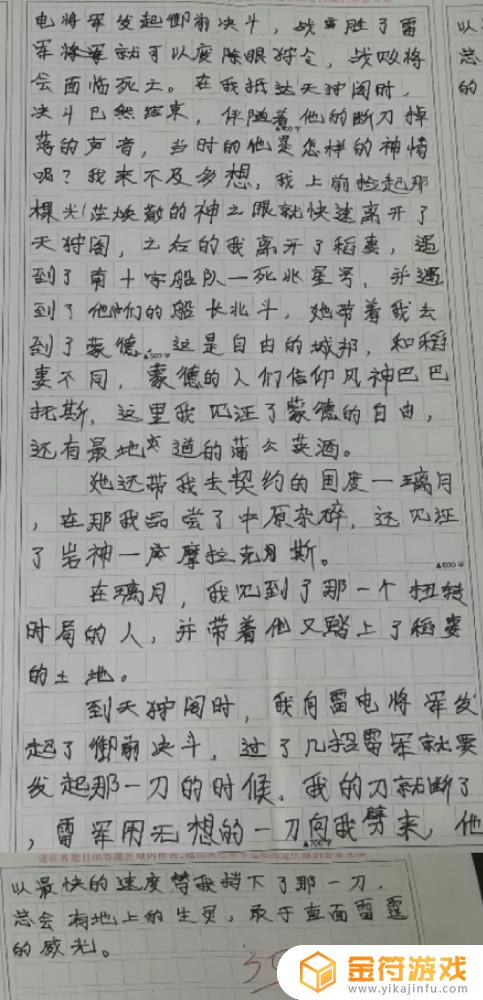 电将军发起御前决斗，战胜了雷
军将军就可以废除眼狩令，战败将
会面临死亡。在我抵达天狩阁时，
决斗已然结束，伴随着他的断刀掉
落的声音，当时的他是怎样的神情
呢？我来不及多想，我上前捡起那
棵光芒焕散的神之眼就快速离开了
天狩阁，之后的我离开了稻妻，遇
到了南十字船队一死兆星号，并遇
到了他们的船长北斗，她带着我去
到了蒙德，这是自由的城邦，和稻
▲500字
妻不同，蒙德的人们信仰风神巴巴
托斯，这里我见证了蒙德的自由，
还有最地道的蒲公英酒。
她还带我去契约的国度一璃月
，在那我品尝了中原杂碎，还见证
了岩神一摩拉克斯。
▲600字
在璃月，我见到了那一个扭转
时局的人，并带着他又踏上了稻妻
的土地。
到天狩阁时，我向雷电将军发
起了御前决斗，过了几招雷军就要
发起那一刀的时候，我的刀就断了
，雷军用无想的一刀向我劈来，他
▲700字
以最快的速度替我挡下了那一刀，
总会有地上的生灵，敢于直面雷霆
的威光。
以
总
的
金符游戏
www.yikajinfu.com